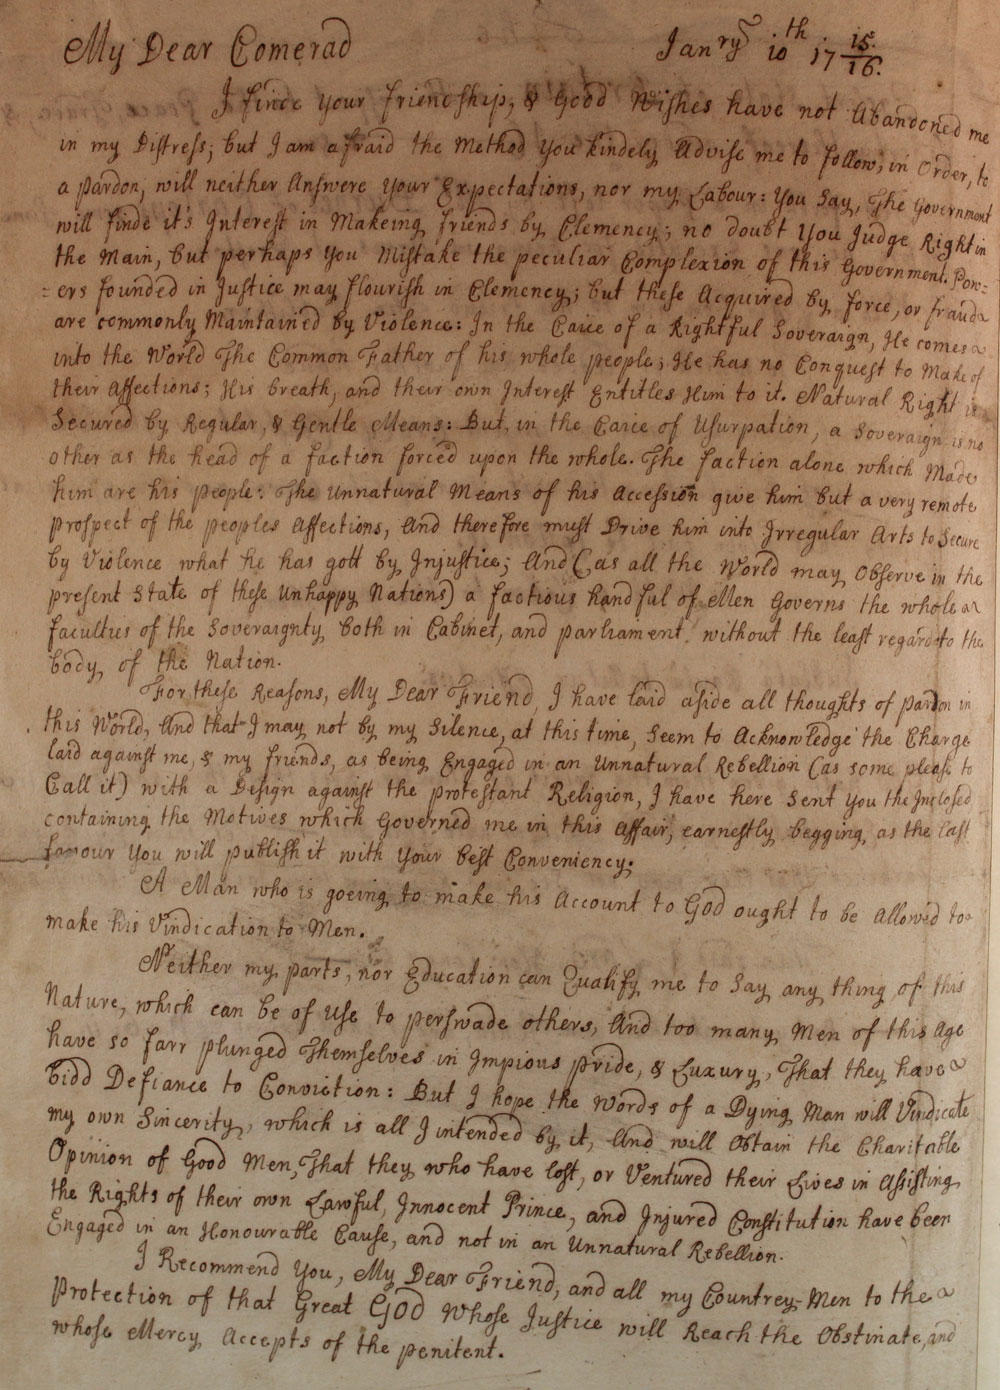 My Dear Comerad Janry 10th 17 15/16.
I finde your friendship, & Good Wishes have not Abandoned me
in my Distress; but I am afraid the Method You kindely Advise me to follow, in Order, to
a pardon, will neither Answere your Expectations, nor my Labour: You Say, The Government
will finde it's Interest in Makeing friends by Clemency; no doubt You Judge Right in
the Main, but perhaps You Mistake the peculiar Complexion of this Government. Pow=
=ers founded in Justice may flourish in Clemency; but these Acquired by force, or fraud
are commonly Maintain'd by Violence: In the Caice of a Rightful Soveraign, He comes
into the World The Common Father of his whole people; He has no Conquest to Make of
their Affections; His breath, and their own Interest Entitles Him to it. Natural Right is
Secured by Regular, & Gentle Means: But, in the Caice of Usurpation, a Soveraign is no
other as the head of a faction forced upon the whole. The faction alone which Made
him are his people: The Unnatural Means of his Accession give him but a very remote
prospect of the peoples Affections, And therefore must Drive him into Irregular Arts to Secure
by Violence what he has gott by Injustice; And (as all the World may Observe in the
present State of these Unhappy Nations) a factious handful of Men Governs the whole
faculties of the Soveraignty both in Cabinet, and parliament without the least regard to the
body of the Nation.
For these Reasons, My Dear Friend, I have laid aside all thoughts of pardon in
this World, And that I may not by my Silence, at this time, Seem to Acknowledge the Charge
laid against me, & my friends, as being Engaged in an Unnatural Rebellion (as some please to
Call it) with a Design against the protestant Religion, I have here Sent You the Inclosed
containing the Motives which Governed me in this Affair, earnestly begging, as the last
favour You will publish it with Your best Conveniency.
A Man who is goeing to make his Account to God ought to be Allowed to
make his Vindication to Men.
Neither my parts, nor Education can Qualify me to Say any thing of this
Nature, which can be of Use to perswade others, And too many Men of this Age
have so farr plunged Themselves in Impious pride, & Luxury, That they have
bidd Defiance to Conviction: But I hope the Words of a Dying Man will Vindicate
my own Sincerity, which is all I intended by it, And will Obtain the Charitable
Opinion of Good Men, That they who have lost, or Ventured their Lives in Assisting
the Rights of their own Lawful, Innocent Prince, and Injured Constitution have been
Engaged in an Honourable Cause, and not in an Unnatural Rebellion.
I Recommend You, My Dear Friend, and all my Countrey-Men to the
Protection of that Great GOD Whose Justice will Reach the Obstinate, and
whose Mercy Accepts of the penitent.